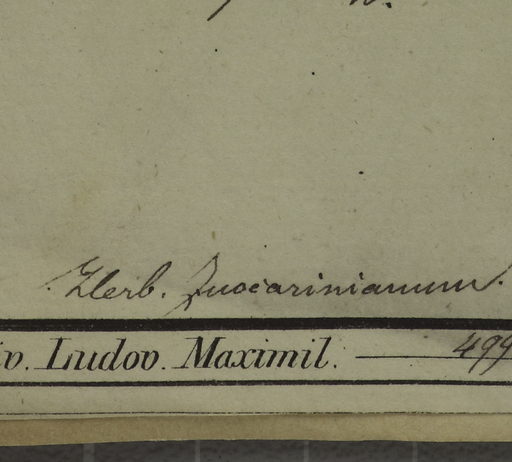 Herb. Zuccarinianum.
iv. Ludov. Maximil. 499